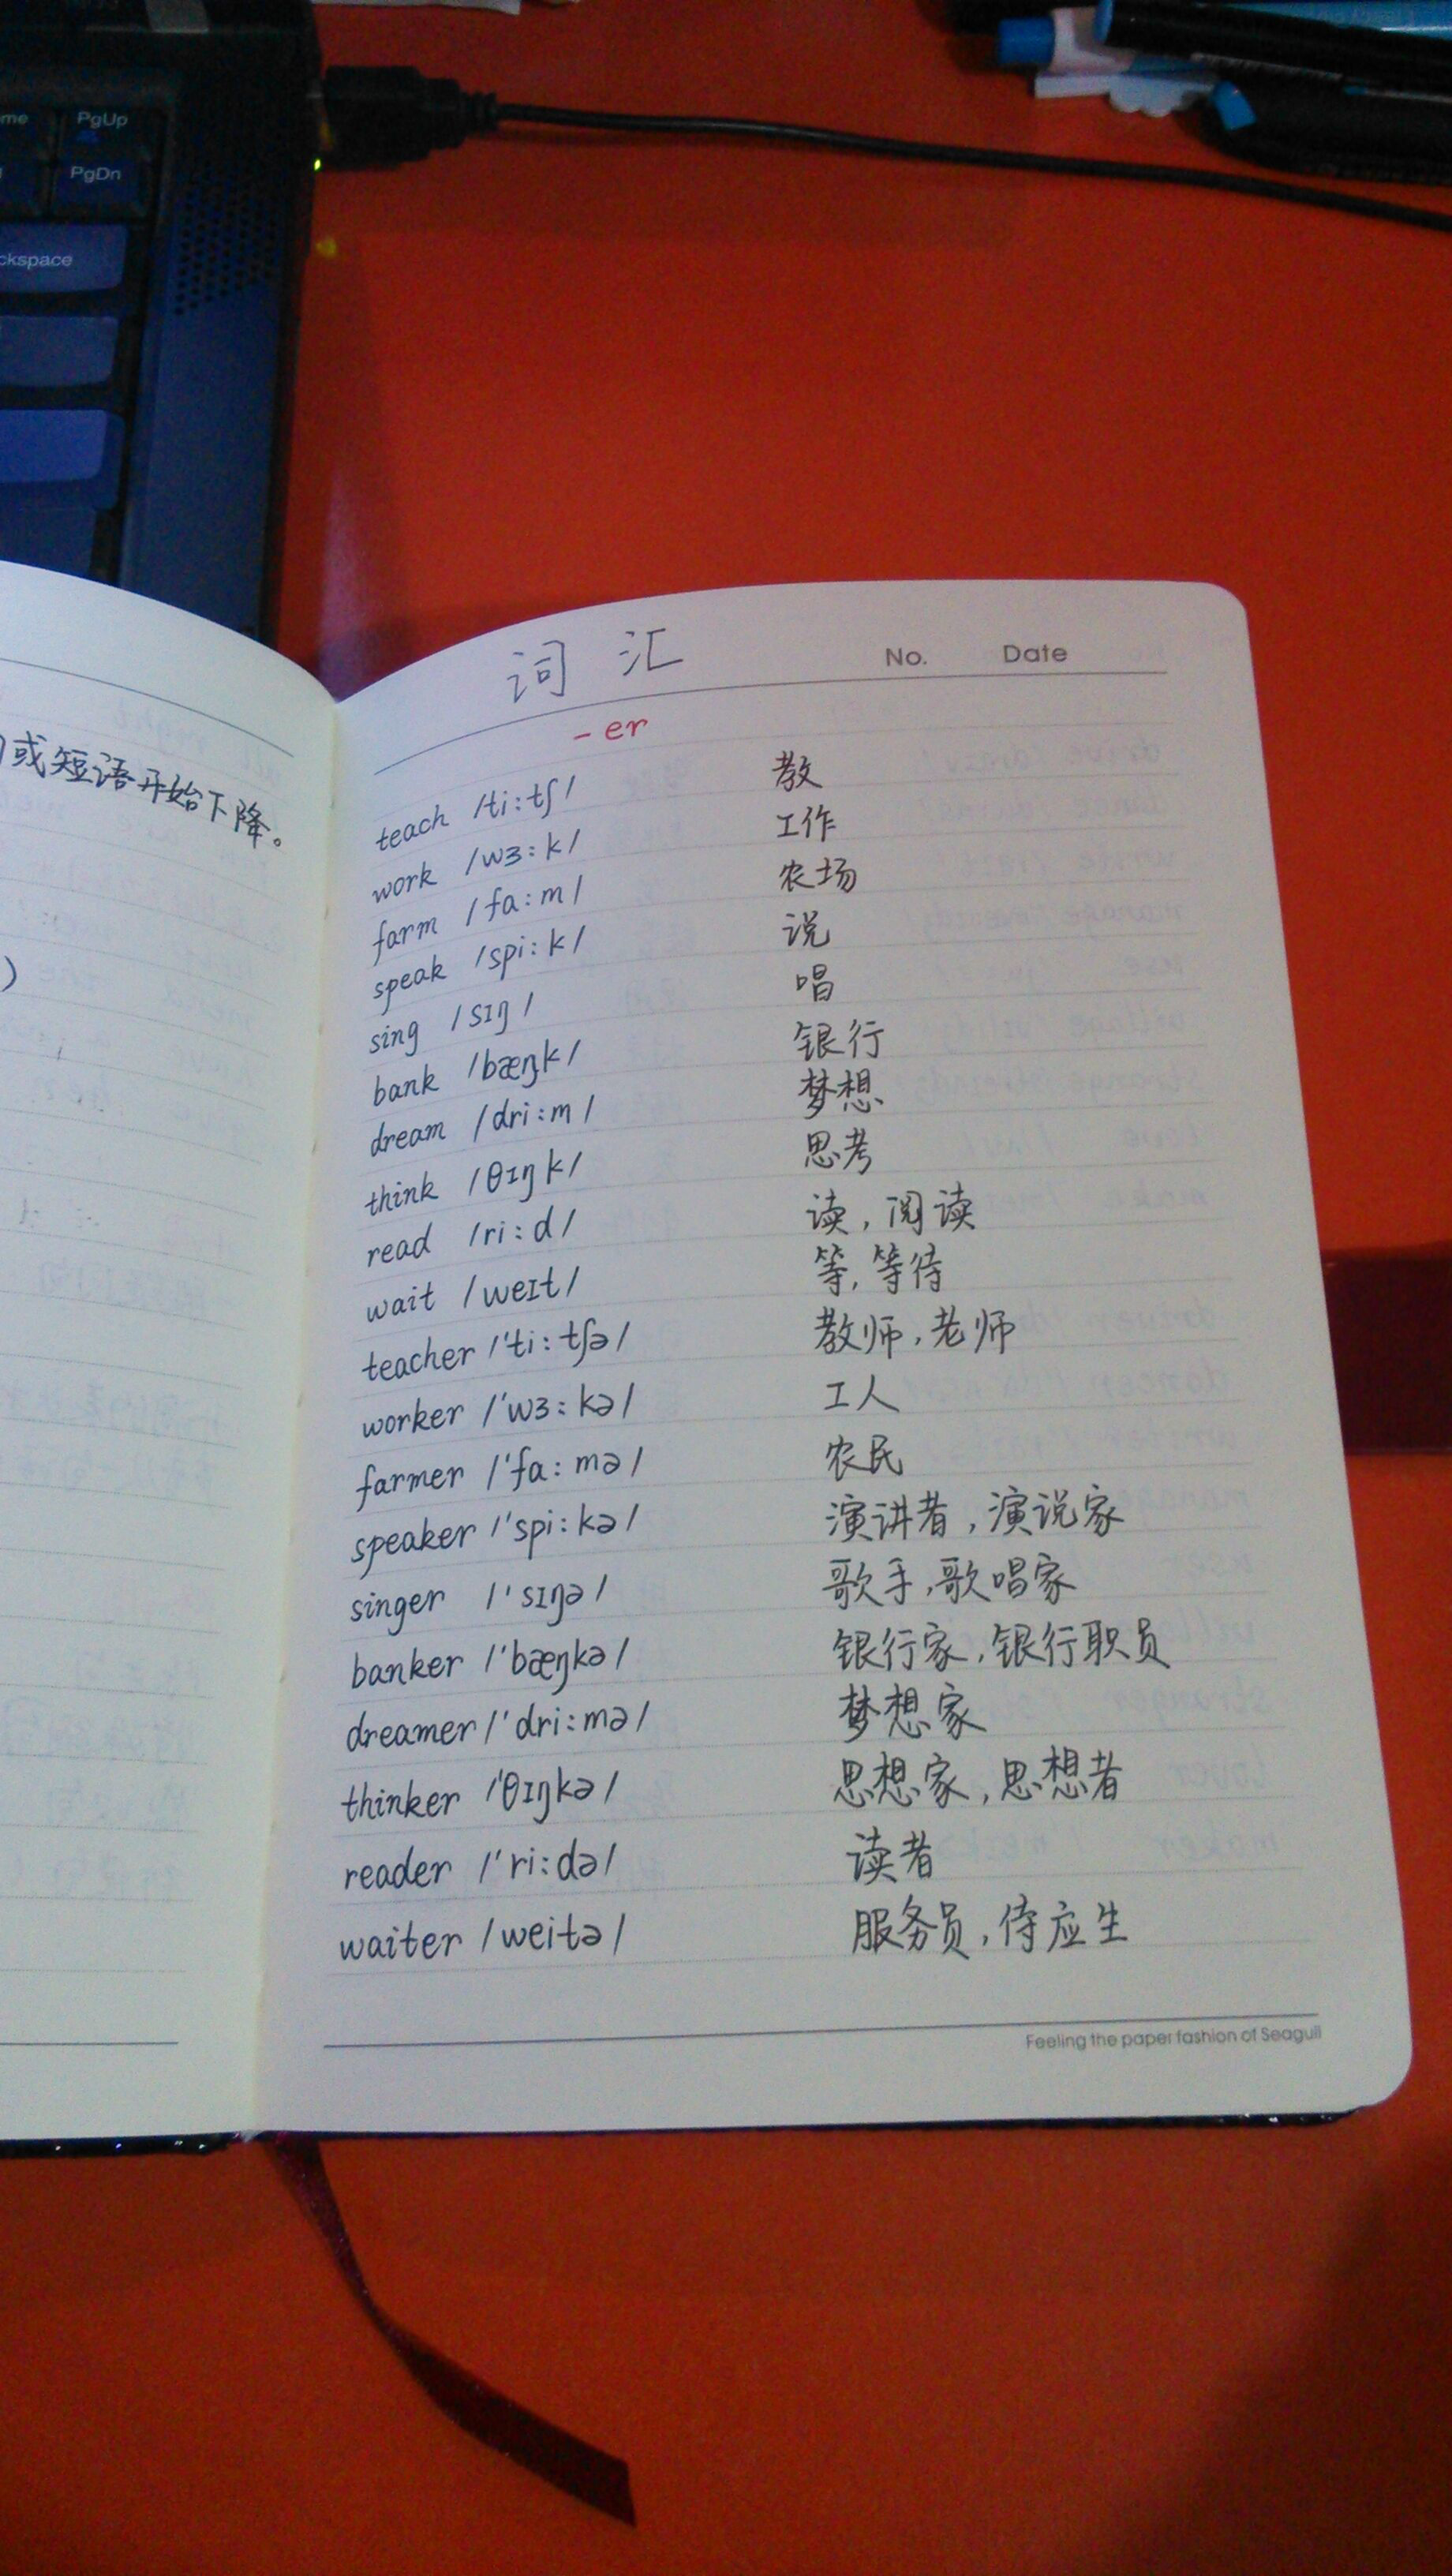 PgUp
PgDn
ckspace
或短语开始下降。
)
词 汇
No. Date
-er
teach /ti:tʃ/ 教
work /wɜ:k/ 工作
farm /fa:m/ 农场
speak /spi:k/ 说
sing /sɪŋ/ 唱
bank /bæŋk/ 银行
dream /dri:m/ 梦想
think /θɪŋk/ 思考
read /ri:d/ 读,阅读
wait /weɪt/ 等,等待
teacher /'ti:tʃə/ 教师,老师
worker /'wɜ:kə/ 工人
farmer /'fa:mə/ 农民
speaker /'spi:kə/ 演讲者,演说家
singer /'sɪŋə/ 歌手,歌唱家
banker /'bæŋkə/ 银行家,银行职员
dreamer /'dri:mə/ 梦想家
thinker /'θɪŋkə/ 思想家,思想者
reader /'ri:də/ 读者
waiter /weitə/ 服务员,侍应生
Feeling the paper fashion of Seagull